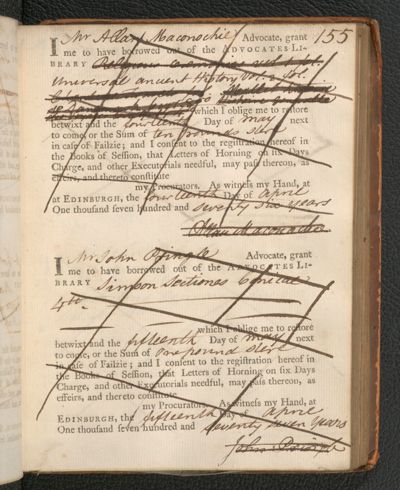 155
I Mr Allan Maconochie Advocate, grant
me to have borrowed out of the ADVOCATES LI-
BRARY Religious
Universal ancient History Vol. 2
which I oblige me to restore
betwixt and the fourteenth Day of may next
to come, or the Sum of ten pounds sterl
in case of Failzie; and I consent to the registration hereof in
the Books of Session, that Letters of Horning on six Days
Charge, and other Executorials needful, may pass thereon, as
effeirs, and thereto constitute
my Procurators. As witness my Hand, at
at EDINBURGH, the fourteenth Day of April
One thousand seven hundred and seventy six years
Allan Maconochie
I Mr John Pringle Advocate, grant
me to have borrowed out of the ADVOCATES LI-
BRARY Simson Sectiones Conicae
4to.
which I oblige me to restore
betwixt and the fifteenth Day of may next
to come, or the Sum of one pound sterl
in case of Failzie; and I consent to the registration hereof in
the Books of Session, that Letters of Horning on six Days
Charge, and other Executorials needful, may pass thereon, as
effeirs, and thereto constitute
my Procurators. As witness my Hand, at
EDINBURGH, the fifteenth Day of April
One thousand seven hundred and seventy seven years
John Pringle